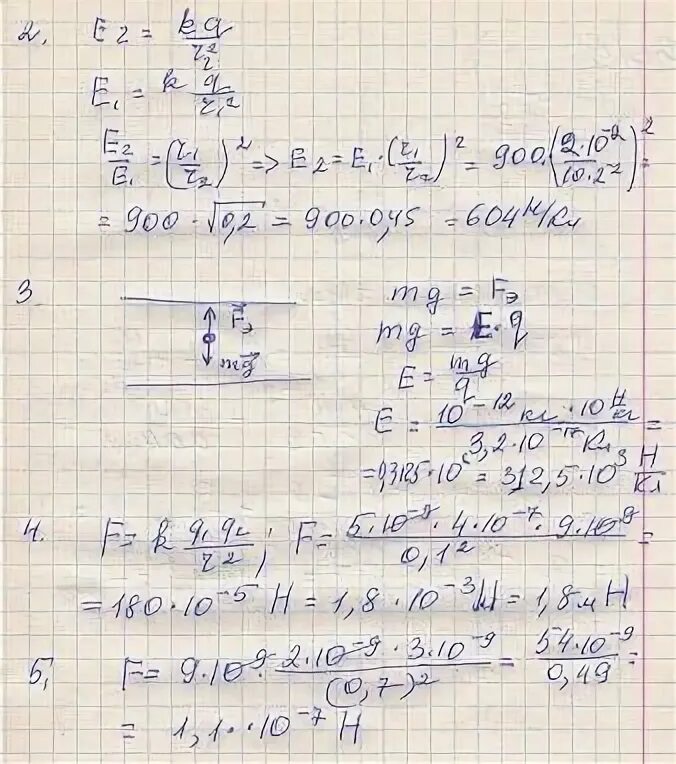 2. E₂ = kq/r₂²
E₁ = k q/r₁²
E₂/E₁ = (r₁/r₂)² => E₂ = E₁·(r₁/r₂)² = 900·(2·10⁻²/10·2⁻²)² =
= 900·√0,2 = 900·0,45 = 604 Н/Кл
3 mg = Fэ
F⃗э
mg⃗
mg = E·q
E = mg/q
E = 10⁻¹² кг·10 Н/кг / 3,2·10⁻¹⁷ Кл =
= 0,3125·10⁶ = 312,5·10³ Н/Кл
4. F = k q₁q₂/r²; F = 5·10⁻⁹·4·10⁻⁷·9·10⁹/0,1² =
= 180·10⁻⁵ Н = 1,8·10⁻³ Н = 1,8 мН
5, F = 9·10⁹·2·10⁻⁹·3·10⁻⁹/(0,7)² = 54·10⁻⁹/0,49 =
= 1,1·10⁻⁷ Н